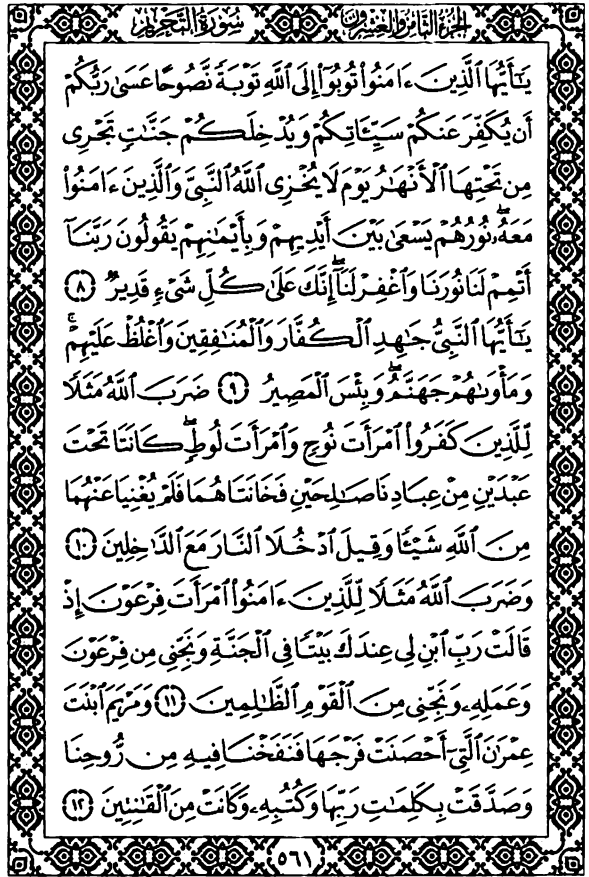 سُورَةُ التَّحْرِيمِ الجُزْءُ الثَّامِنُ وَالعِشْرُونَ
يَٰٓأَيُّهَا ٱلَّذِينَ ءَامَنُوا۟ تُوبُوٓا۟ إِلَى ٱللَّهِ تَوْبَةً نَّصُوحًا عَسَىٰ رَبُّكُمْ
أَن يُكَفِّرَ عَنكُمْ سَيِّـَٔاتِكُمْ وَيُدْخِلَكُمْ جَنَّٰتٍ تَجْرِى
مِن تَحْتِهَا ٱلْأَنْهَٰرُ يَوْمَ لَا يُخْزِى ٱللَّهُ ٱلنَّبِىَّ وَٱلَّذِينَ ءَامَنُوا۟
مَعَهُۥۖ نُورُهُمْ يَسْعَىٰ بَيْنَ أَيْدِيهِمْ وَبِأَيْمَٰنِهِمْ يَقُولُونَ رَبَّنَآ
أَتْمِمْ لَنَا نُورَنَا وَٱغْفِرْ لَنَآۖ إِنَّكَ عَلَىٰ كُلِّ شَىْءٍ قَدِيرٌ ٨
يَٰٓأَيُّهَا ٱلنَّبِىُّ جَٰهِدِ ٱلْكُفَّارَ وَٱلْمُنَٰفِقِينَ وَٱغْلُظْ عَلَيْهِمْۚ
وَمَأْوَىٰهُمْ جَهَنَّمُۖ وَبِئْسَ ٱلْمَصِيرُ ٩ ضَرَبَ ٱللَّهُ مَثَلًا
لِّلَّذِينَ كَفَرُوا۟ ٱمْرَأَتَ نُوحٍ وَٱمْرَأَتَ لُوطٍۖ كَانَتَا تَحْتَ
عَبْدَيْنِ مِنْ عِبَادِنَا صَٰلِحَيْنِ فَخَانَتَاهُمَا فَلَمْ يُغْنِيَا عَنْهُمَا
مِنَ ٱللَّهِ شَيْـًٔا وَقِيلَ ٱدْخُلَا ٱلنَّارَ مَعَ ٱلدَّٰخِلِينَ ١٠
وَضَرَبَ ٱللَّهُ مَثَلًا لِّلَّذِينَ ءَامَنُوا۟ ٱمْرَأَتَ فِرْعَوْنَ إِذْ
قَالَتْ رَبِّ ٱبْنِ لِى عِندَكَ بَيْتًا فِى ٱلْجَنَّةِ وَنَجِّنِى مِن فِرْعَوْنَ
وَعَمَلِهِۦ وَنَجِّنِى مِنَ ٱلْقَوْمِ ٱلظَّٰلِمِينَ ١١ وَمَرْيَمَ ٱبْنَتَ
عِمْرَٰنَ ٱلَّتِىٓ أَحْصَنَتْ فَرْجَهَا فَنَفَخْنَا فِيهِ مِن رُّوحِنَا
وَصَدَّقَتْ بِكَلِمَٰتِ رَبِّهَا وَكُتُبِهِۦ وَكَانَتْ مِنَ ٱلْقَٰنِتِينَ ١٢
٥٦١